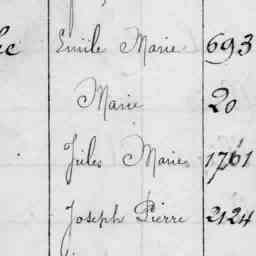 Emile Marie 693
Marie 20
Jules Marie 1761
Joseph Pierre 2124